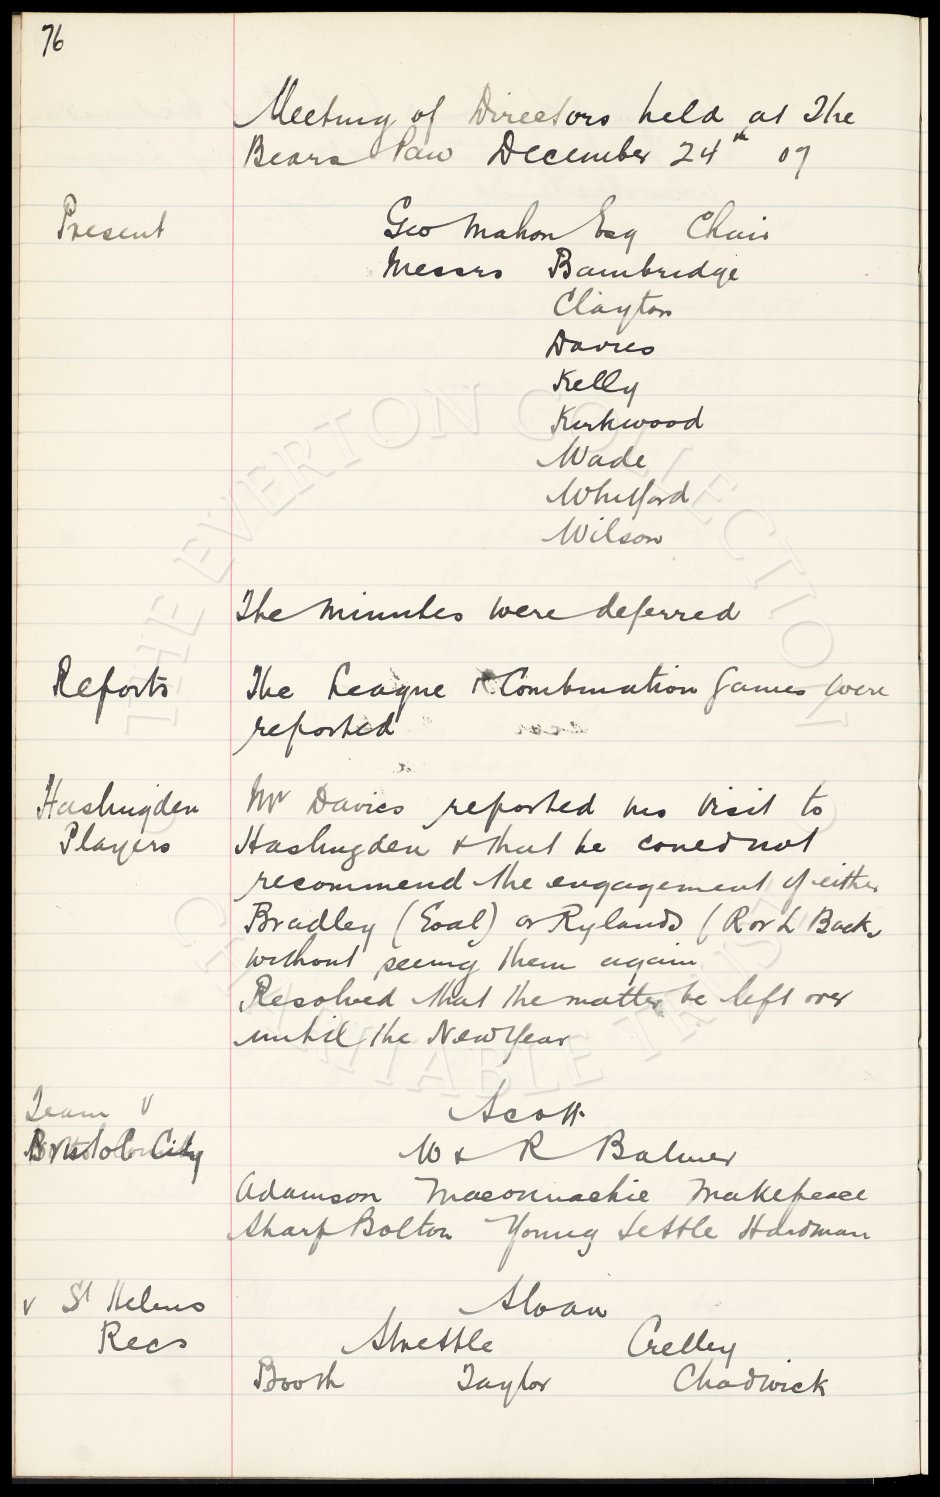 76
Meeting of Directors held at The
Bears Paw December 24th 07
Present
Geo Mahon Esq Chair
Messrs Bambridge
Clayton
Davies
Kelly
Kirkwood
Wade
Whitford
Wilson
The minutes were deferred
Reports
The League & Combination games were
reported
Haslingden
Players
Mr Davies reported his visit to
Haslingden & that he could not
recommend the engagement of either
Bradley (Goal) or Rylands (R or L Back
without seeing them again
Resolved that the matter be left over
until the New Year
Team v
Bristol City
Scott
W & R Balmer
Adamson Maconnachie Makepeace
Sharp Bolton Young Settle Hardman
v St Helens
Recs
Sloan
Strettle Crelley
Booth Taylor Chadwick
THE EVERTON COLLECTION
CHARITABLE TRUST